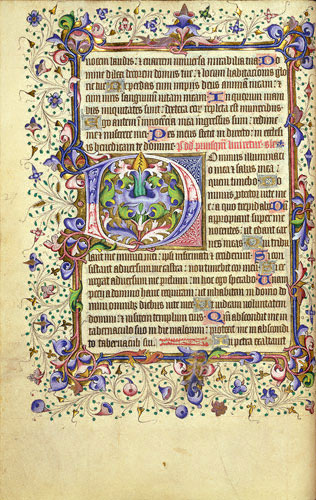 vocem laudis: & enarrem universa mirabilia tua Do
mine dilexi decorem domus tue: & locum habitacionis glo
rie tue Ne perdas cum impiis deus animam meam: et
cum viris sanguinum vitam meam In quorum mani
bus iniquitates sunt: dextera eorum repleta est muneribus
Ego autem in innocencia mea ingressus sum: redime
me et miserere mei Pes meus stetit in directo: in ecclesiis
benedicam te domine. priusquam liniretur
Dominus illuminatio
mea et salus mea:
quem timebo Dominus
protector vite me
e a quo trepidabo Dum
appropiant super me
nocentes: ut edant car
nes meas Qui tribu
lant me inimici mei: ipsi infirmati & ceciderunt Si con
sistant adversum me castra: non timebit cor meum Si
exurgat adversum me prelium: in hoc ego sperabo Unam
pecii a domino hanc requiram: ut inhabitem in domo do
mini omnibus diebus vite mee Ut videam voluntatem
domini: & visitem templum eius Qm abscondit me in
tabernaculo suo in die malorum: protexit me in abscondi
to tabernaculi sui. In petra exaltavit